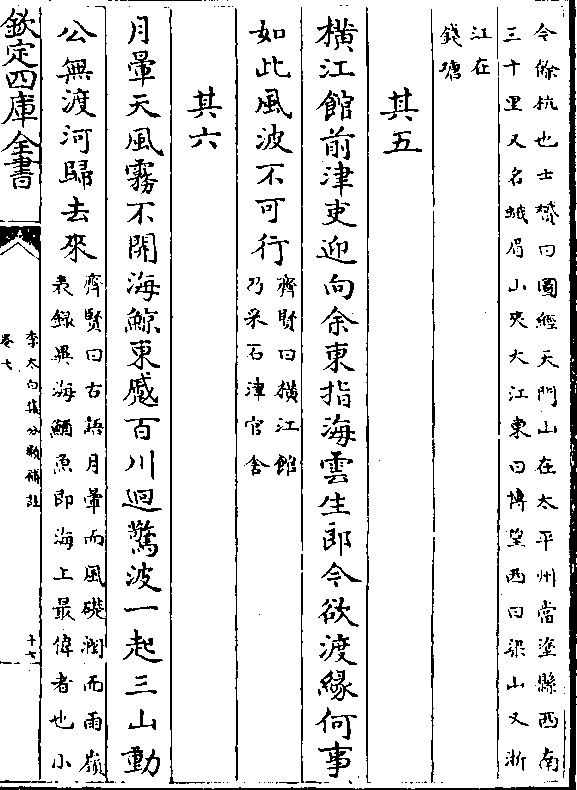 今餘杭也士贇曰圖經天門山在太平州當塗縣西南
三十里又名蛾眉山夾大江東曰博望西曰梁山又浙
江在
錢塘
其五
橫江館前津吏迎向余東指海雲生郎今欲渡緣何事
如此風波不可行
齊賢曰橫江館
乃采石津官舍
其六
月暈天風霧不開海鯨東蹙百川迴驚波一起三山動
公無渡河歸去來
齊賢曰古語月暈而風礎潤而雨嶺
表録異海鰌魚即海上最偉者也小
欽定四庫全書
李太白集分類補註
卷七
十七